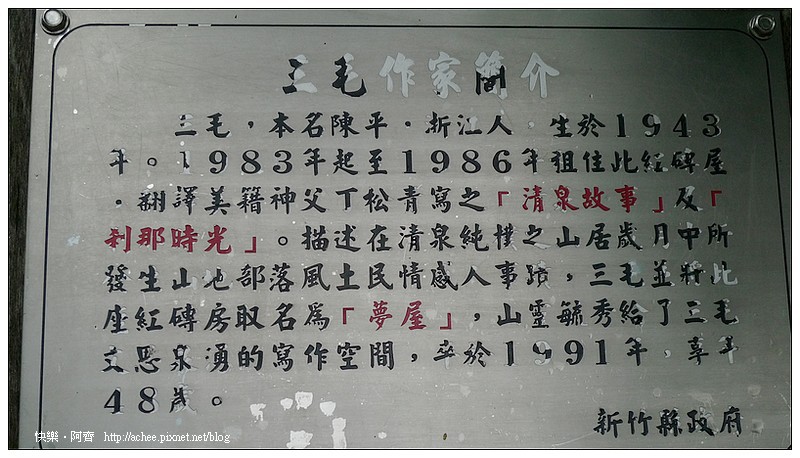 三毛作家簡介
三毛，本名陳平。折江人 生於1943
年。1983年起至1986年租住此紅磚屋
。翻譯美籍神父丁松青寫之「清泉故事」及「
剎那時光」。描述在清泉純樸之山居歲月中所
發生山地部落風土民情感人事蹟，三毛並將此
座紅磚房取名為「夢屋」，山靈毓秀給了三毛
文思泉湧的寫作空間，卒於1991年，享年
48歲。
新竹縣政府
快樂・阿齊 http://achee.pixnet.net/blog